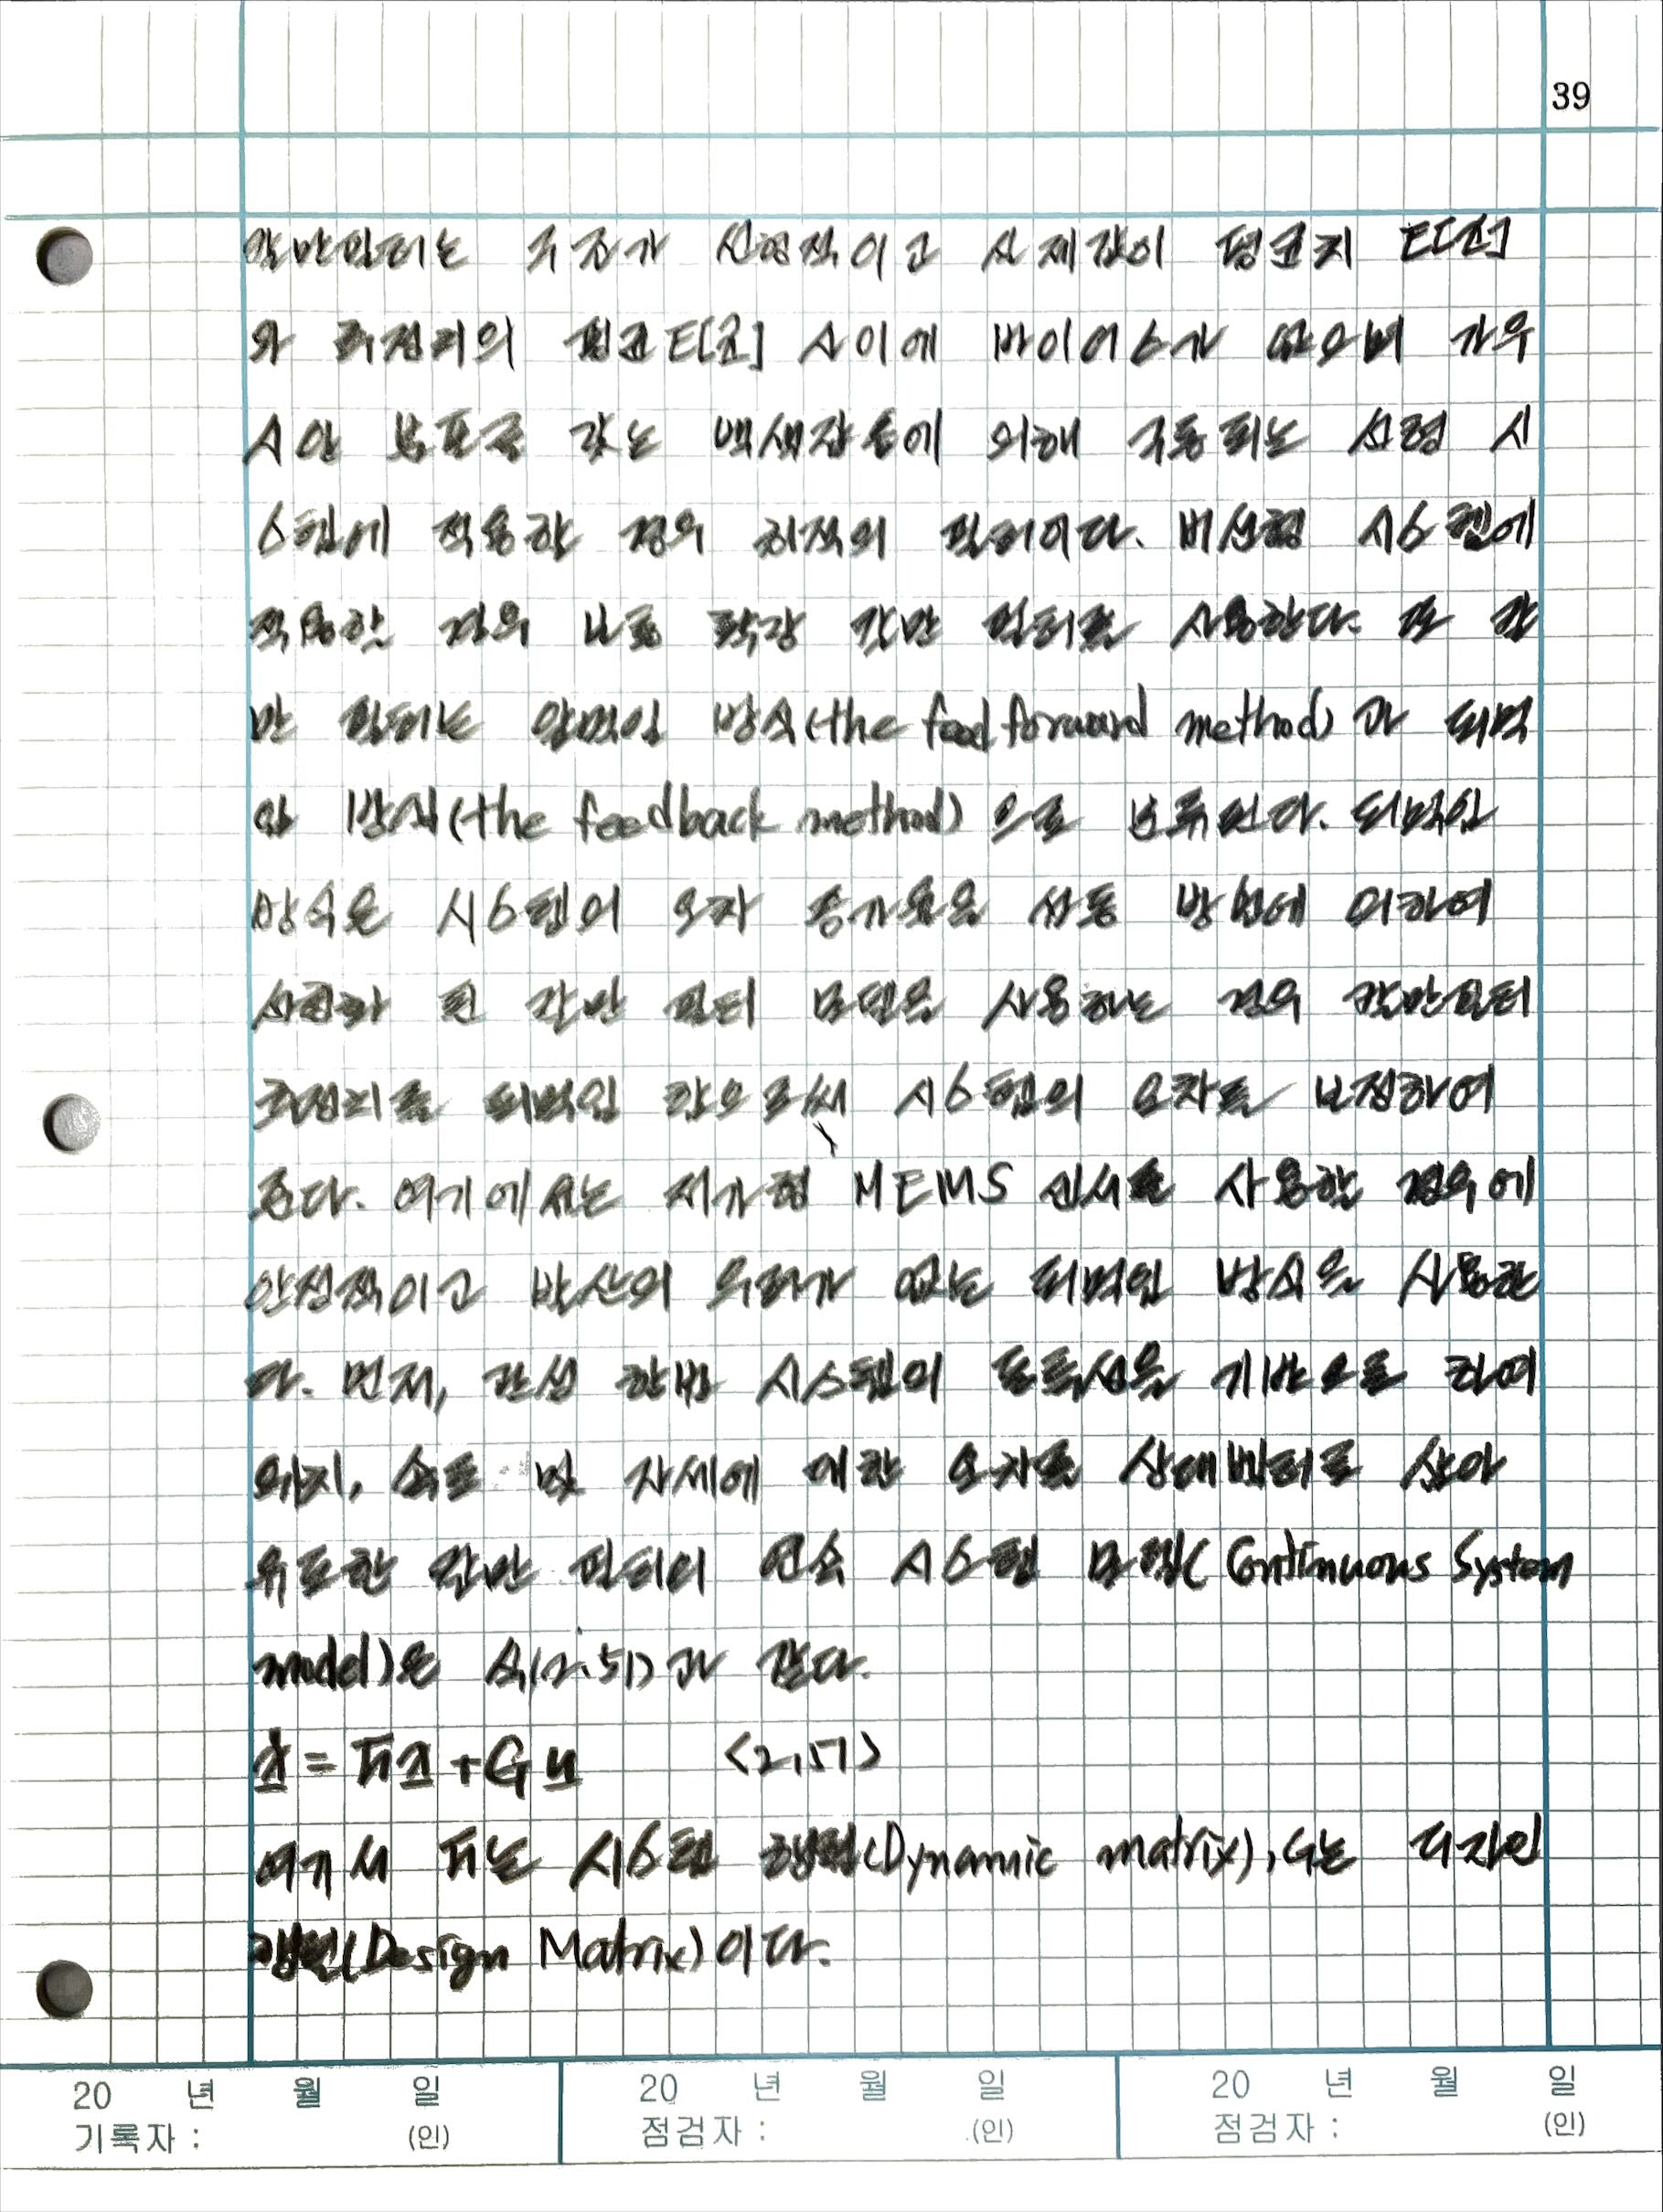 39
칼만필터는 구조가 선형적이고 실제값이 평균치 E[x]
와 추정치의 평균 E[x̂] 사이에 바이어스가 없으며 가우
시안 분포를 갖는 백색잡음에 의해 구동되는 선형 시
스템에 적용할 경우 최적의 필터이다. 비선형 시스템에
적용할 경우 보통 확장 칼만 필터를 사용한다. 또 칼
만 필터는 앞먹임 방식(the feed forward method)과 되먹
임 방식(the feedback method)으로 분류된다. 되먹임
방식은 시스템의 오차 증가율을 섭동 방법에 의하여
선형화 된 칼만 필터 모델을 사용하는 경우 칼만필터
추정치를 되먹임 함으로써 시스템의 오차를 보정하여
준다. 여기에서는 저가형 MEMS 센서를 사용할 경우에
안정적이고 발산의 우려가 없는 되먹임 방식을 사용한
다. 먼저, 관성 항법 시스템의 특성을 기반으로 하여
위치, 속도 및 자세에 대한 오차를 상태벡터로 삼아
유도한 칼만 필터의 연속 시스템 모델(Continuous System
model)은 식(2.51)과 같다.
ẋ = Fx + Gu <2,51>
여기서 F는 시스템 행렬(Dynamic matrix), G는 디자인
행렬(Design Matrix)이다.
20 년 월 일 20 년 월 일 20 년 월 일
기록자 : (인) 점검자 : (인) 점검자 : (인)